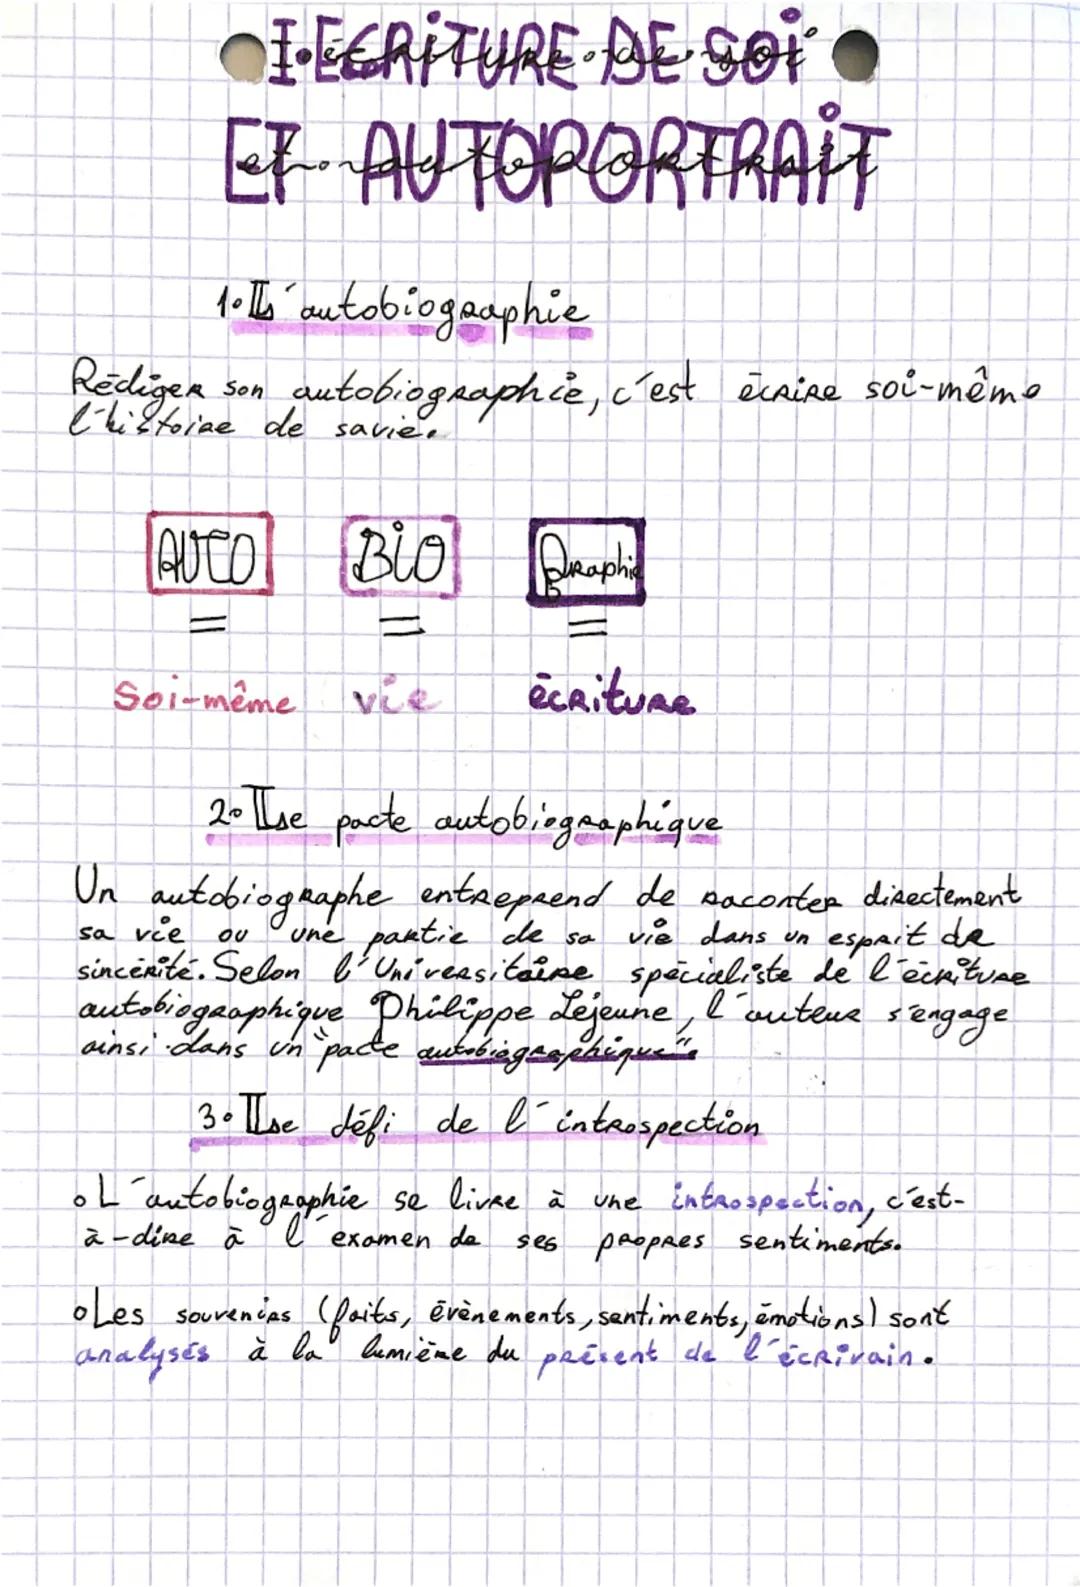 I. ECRITURE DE SOI
ET AUTOPORTRAIT
1. L'autobiographie
Rédiger son autobiographie, c'est écrire soi-même
l'histoire de sa vie.
AUTO BIO Graphie
= = =
Soi-même vie écriture
2. Le pacte autobiographique
Un autobiographe entreprend de raconter directement
sa vie ou une partie de sa vie dans un esprit de
sincérité. Selon l'Universitaire spécialiste de l'écriture
autobiographique Philippe Lejeune, l'auteur s'engage
ainsi dans un "pacte autobiographique".
3. Le défi de l'introspection
• L'autobiographie se livre à une introspection, c'est-
à-dire à l'examen de ses propres sentiments.
• Les souvenirs (faits, évènements, sentiments, émotions) sont
analysés à la lumière du présent de l'écrivain.